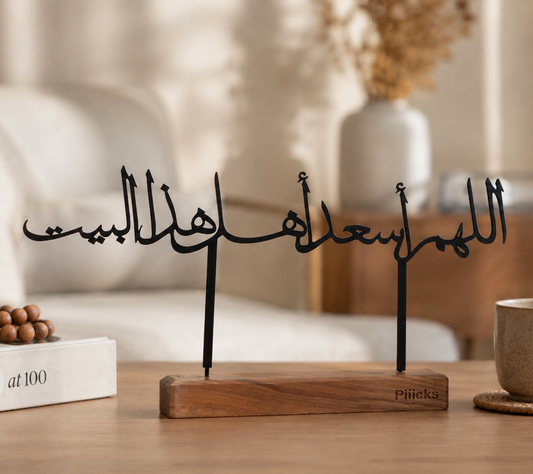 اللهم أسعد أهل هذا البيت
Piiicks
at 100